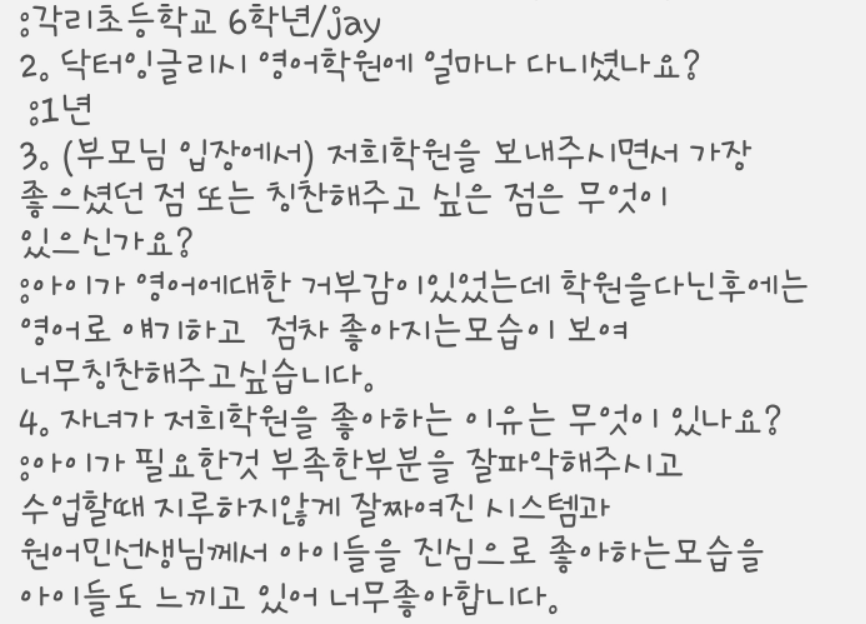 :각리초등학교 6학년/jay
2. 닥터잉글리시 영어학원에 얼마나 다니셨나요?
:1년
3. (부모님 입장에서) 저희학원을 보내주시면서 가장
좋으셨던 점 또는 칭찬해주고 싶은 점은 무엇이
있으신가요?
:아이가 영어에대한 거부감이있었는데 학원을다닌후에는
영어로 얘기하고 점차 좋아지는모습이 보여
너무칭찬해주고싶습니다.
4. 자녀가 저희학원을 좋아하는 이유는 무엇이 있나요?
:아이가 필요한것 부족한부분을 잘파악해주시고
수업할때 지루하지않게 잘짜여진 시스템과
원어민선생님께서 아이들을 진심으로 좋아하는모습을
아이들도 느끼고 있어 너무좋아합니다.